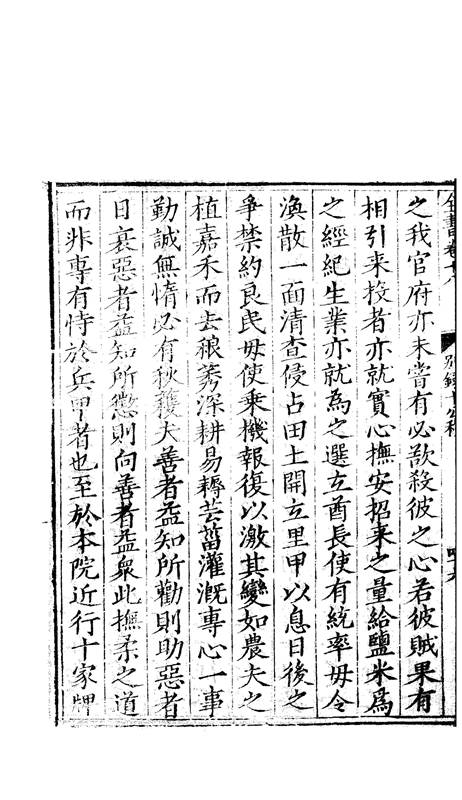 全書卷十八 別錄十公移
之我官府亦未嘗有必欲殺彼之心若彼賊果有
相引来投者亦就實心撫安招来之量給鹽米為
之經紀生業亦就為之選立酋長使有統率毋令
渙散一面清查侵占田土開立里甲以息日後之
爭禁約良民毋使乘機報復以激其變如農夫之
植嘉禾而去稂莠深耕易耨芸菑灌溉專心一事
勤誠無惰必有秋穫夫善者益知所勸則助惡者
日衰惡者益知所懲則向善者益衆此撫柔之道
而非專有恃於兵甲者也至於本院近行十家牌